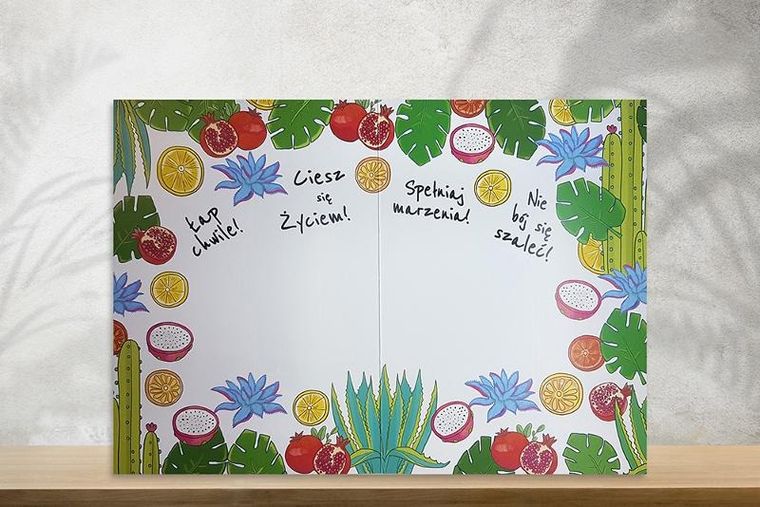 Łap
chwile!
Ciesz
się
Życiem!
Spełniaj
marzenia!
Nie
bój się
szaleć!